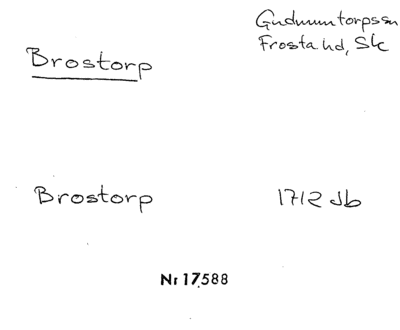 Gudmuntorpssn
Frosta hd, Sk
Brostorp
Brostorp 1712 Jb
Nr 17.588